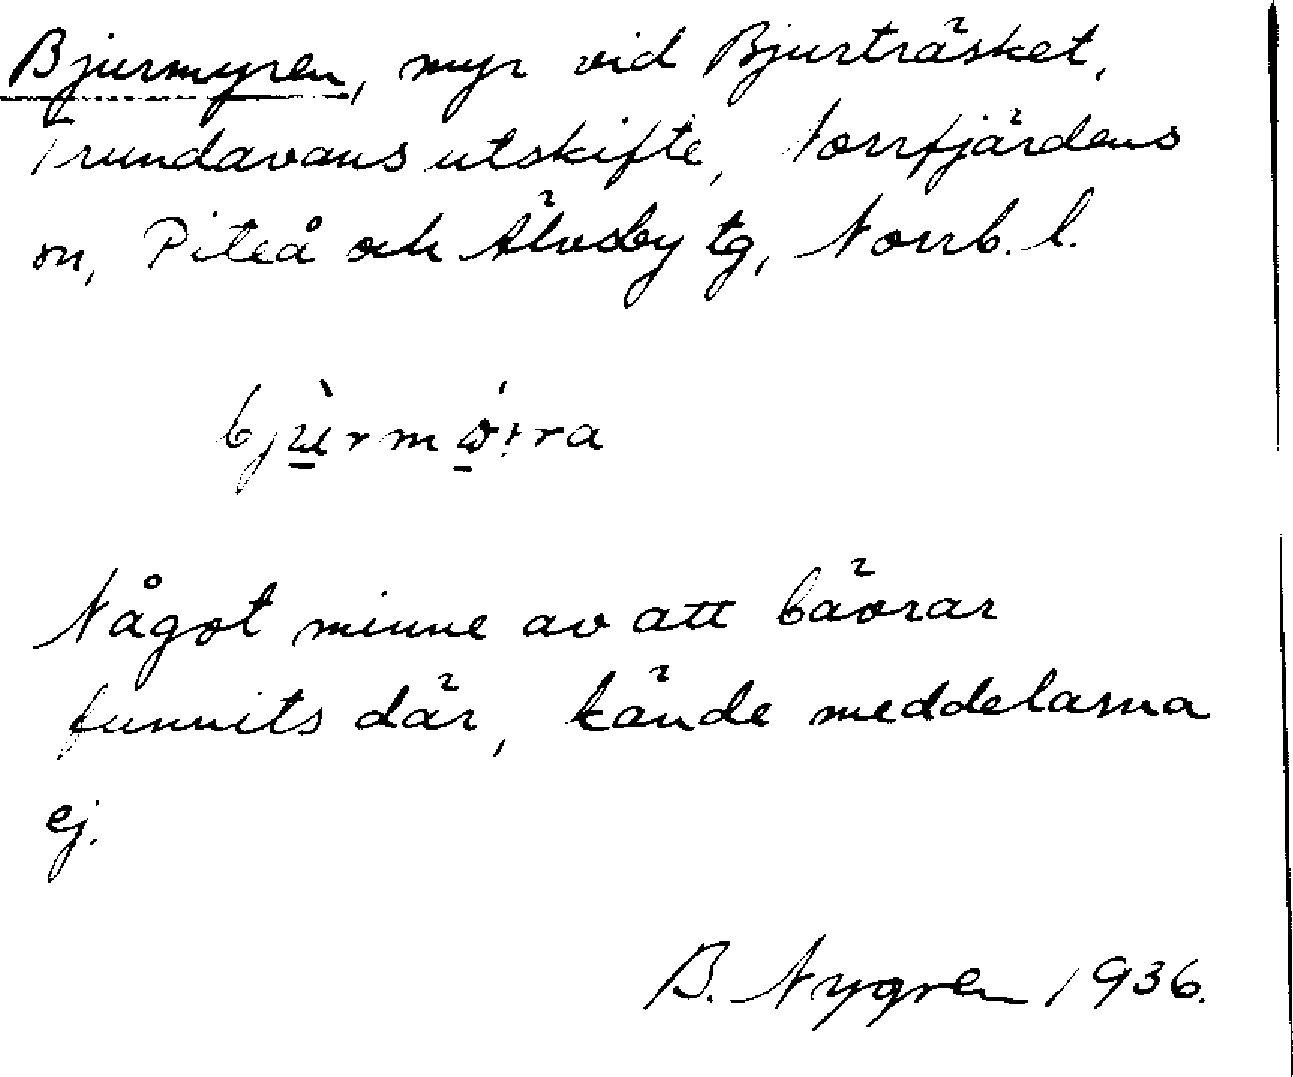 Bjurmyren, myr vid Bjurträsket,
Trundavans utskifte, Norrfjärdens
sn, Piteå och Älvsby tg, Norrb. l.
Något minne av att bävrar
funnits där, kände meddelarna
ej.
B. Nygren 1936.